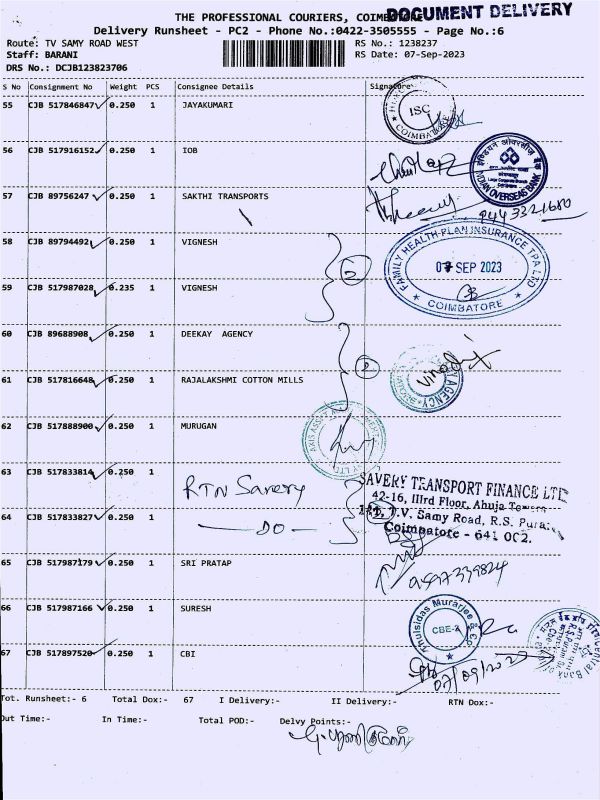 THE PROFESSIONAL COURIERS, COIMBATORE
DOCUMENT DELIVERY
Delivery Runsheet - PC2 - Phone No.:0422-3505555 - Page No.:6
Route: TV SAMY ROAD WEST
RS No.: 1238237
Staff: BARANI
RS Date: 07-Sep-2023
DRS No.: DCJB123823706
S No Consignment No Weight PCS Consignee Details Signature
55 CJB 517846847 0.250 1 JAYAKUMARI
ISC
COIMBATORE
56 CJB 517916152 0.250 1 IOB
INDIAN OVERSEAS BANK
57 CJB 89756247 0.250 1 SAKTHI TRANSPORTS
9443321680
58 CJB 89794492 0.250 1 VIGNESH
FAMILY HEALTH PLAN INSURANCE TPA LTD
07 SEP 2023
COIMBATORE
59 CJB 517987028 0.235 1 VIGNESH
60 CJB 89688908 0.250 1 DEEKAY AGENCY
61 CJB 517816648 0.250 1 RAJALAKSHMI COTTON MILLS
62 CJB 517888900 0.250 1 MURUGAN
63 CJB 517833814 0.250 1
RTN Savery
SAVERY TRANSPORT FINANCE LTD
42-16, IIIrd Floor, Ahuja Towers
T.V. Samy Road, R.S. Puram,
Coimbatore - 641 002.
64 CJB 517833827 0.250 1
— DO —
65 CJB 517987179 0.250 1 SRI PRATAP
66 CJB 517987166 0.250 1 SURESH
Khulsidas Murarjee & Co
CBE-2
67 CJB 517897520 0.250 1 CBI
07/09/2023
Tot. Runsheet:- 6 Total Dox:- 67 I Delivery:- II Delivery:- RTN Dox:-
Out Time:- In Time:- Total POD:- Delvy Points:-